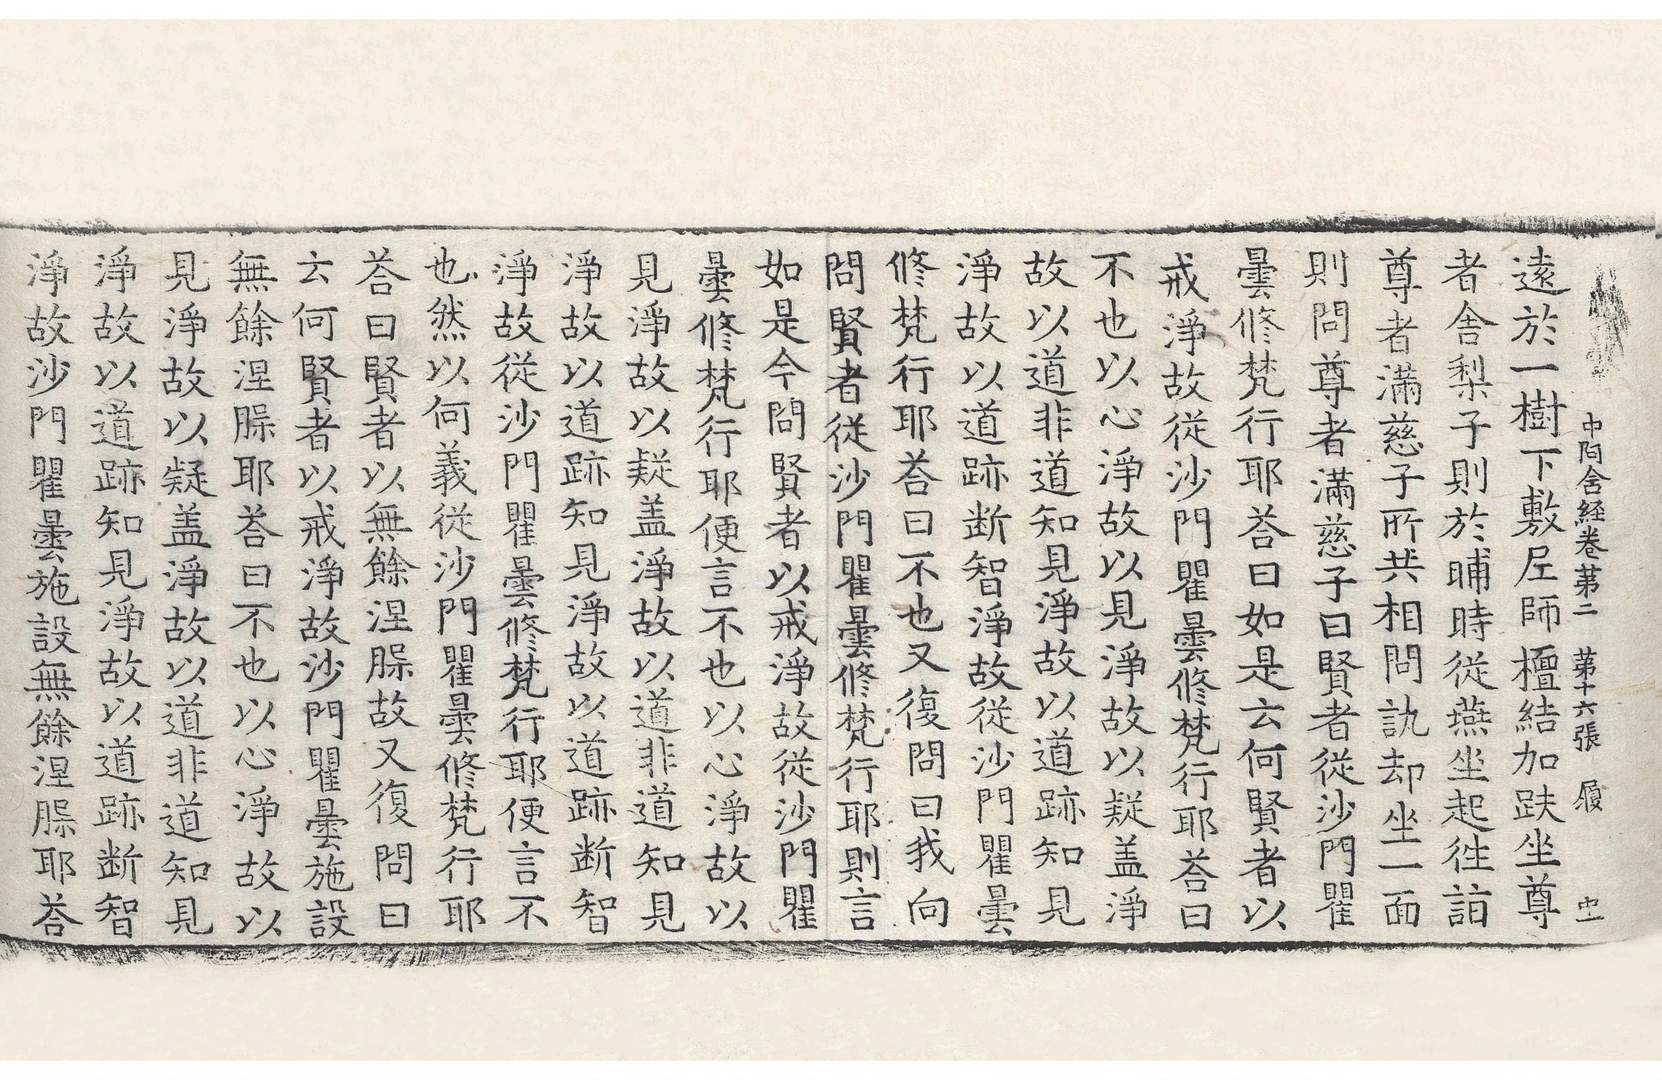 中阿含経卷苐二 苐十六張 履
遠於一樹下敷尼師檀結加趺坐尊
者舍梨子則於晡時從燕坐起往詣
尊者滿慈子所共相問訊却坐一面
則問尊者滿慈子曰賢者從沙門瞿
曇修梵行耶荅曰如是云何賢者以
戒淨故從沙門瞿曇修梵行耶荅曰
不也以心淨故以見淨故以疑盖淨
故以道非道知見淨故以道跡知見
淨故以道跡断智淨故從沙門瞿曇
修梵行耶荅曰不也又復問曰我向
問賢者從沙門瞿曇修梵行耶則言
如是今問賢者以戒淨故從沙門瞿
曇修梵行耶便言不也以心淨故以
見淨故以疑盖淨故以道非道知見
淨故以道跡知見淨故以道跡断智
淨故從沙門瞿曇修梵行耶便言不
也然以何義從沙門瞿曇修梵行耶
荅曰賢者以無餘涅槃故又復問曰
云何賢者以戒淨故沙門瞿曇施設
無餘涅槃耶荅曰不也以心淨故以
見淨故以疑盖淨故以道非道知見
淨故以道跡知見淨故以道跡断智
淨故沙門瞿曇施設無餘涅槃耶荅